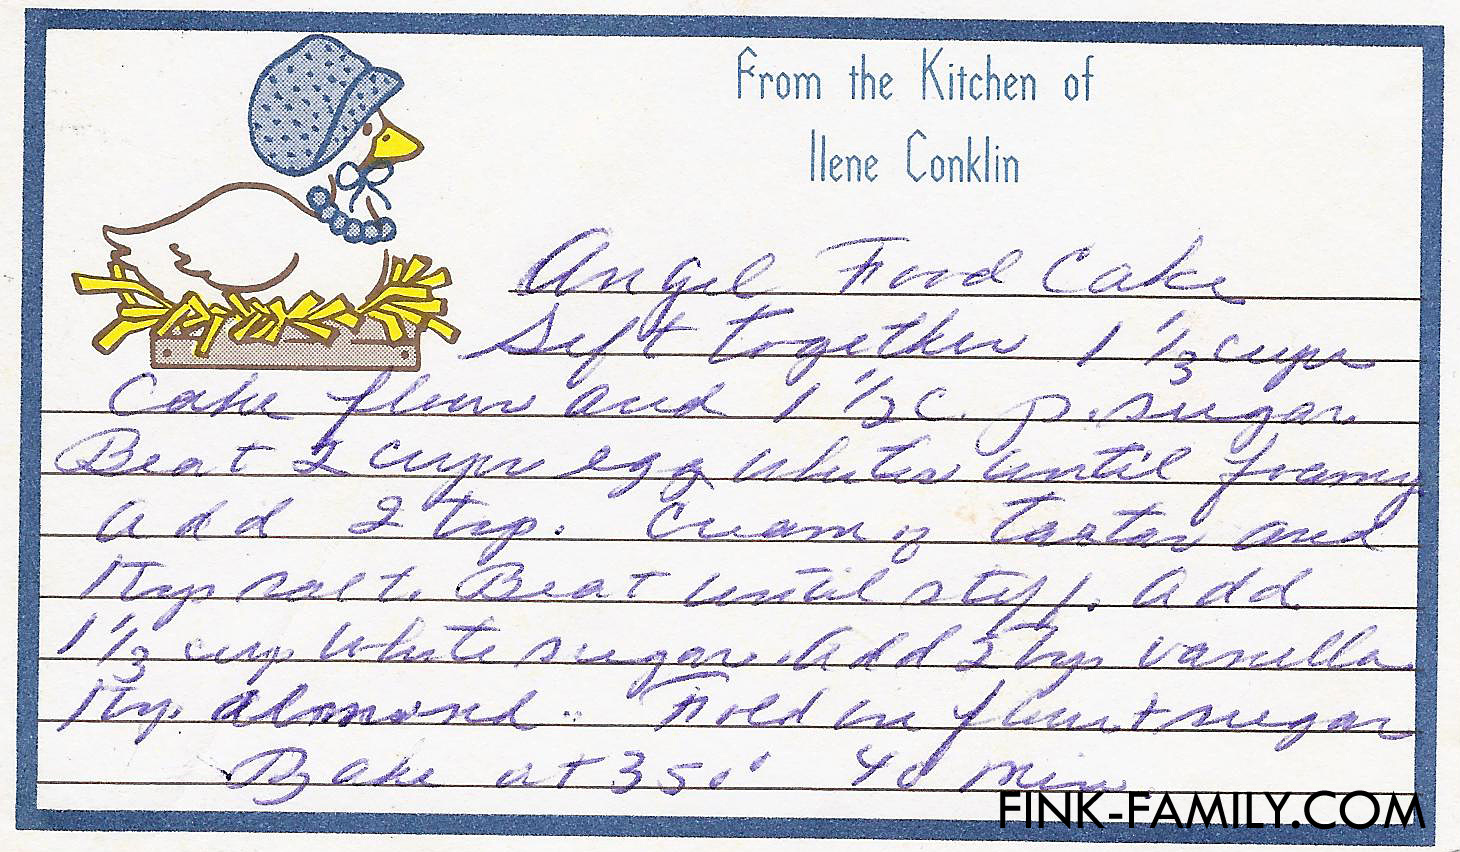 From the Kitchen of
Ilene Conklin
Angel Food Cake
Sift together 1 1/3 cups
Cake flour and 1 1/2 c. p. sugar
Beat 2 cups egg whites until foamy
add 2 tsp. Cream of tartar and
1 tsp salt. Beat until stiff. Add
1 1/3 cup white sugar. Add 2 tsp vanilla
1 tsp. almond. Fold in flour + sugar
Bake at 350° 40 min.
FINK-FAMILY.COM